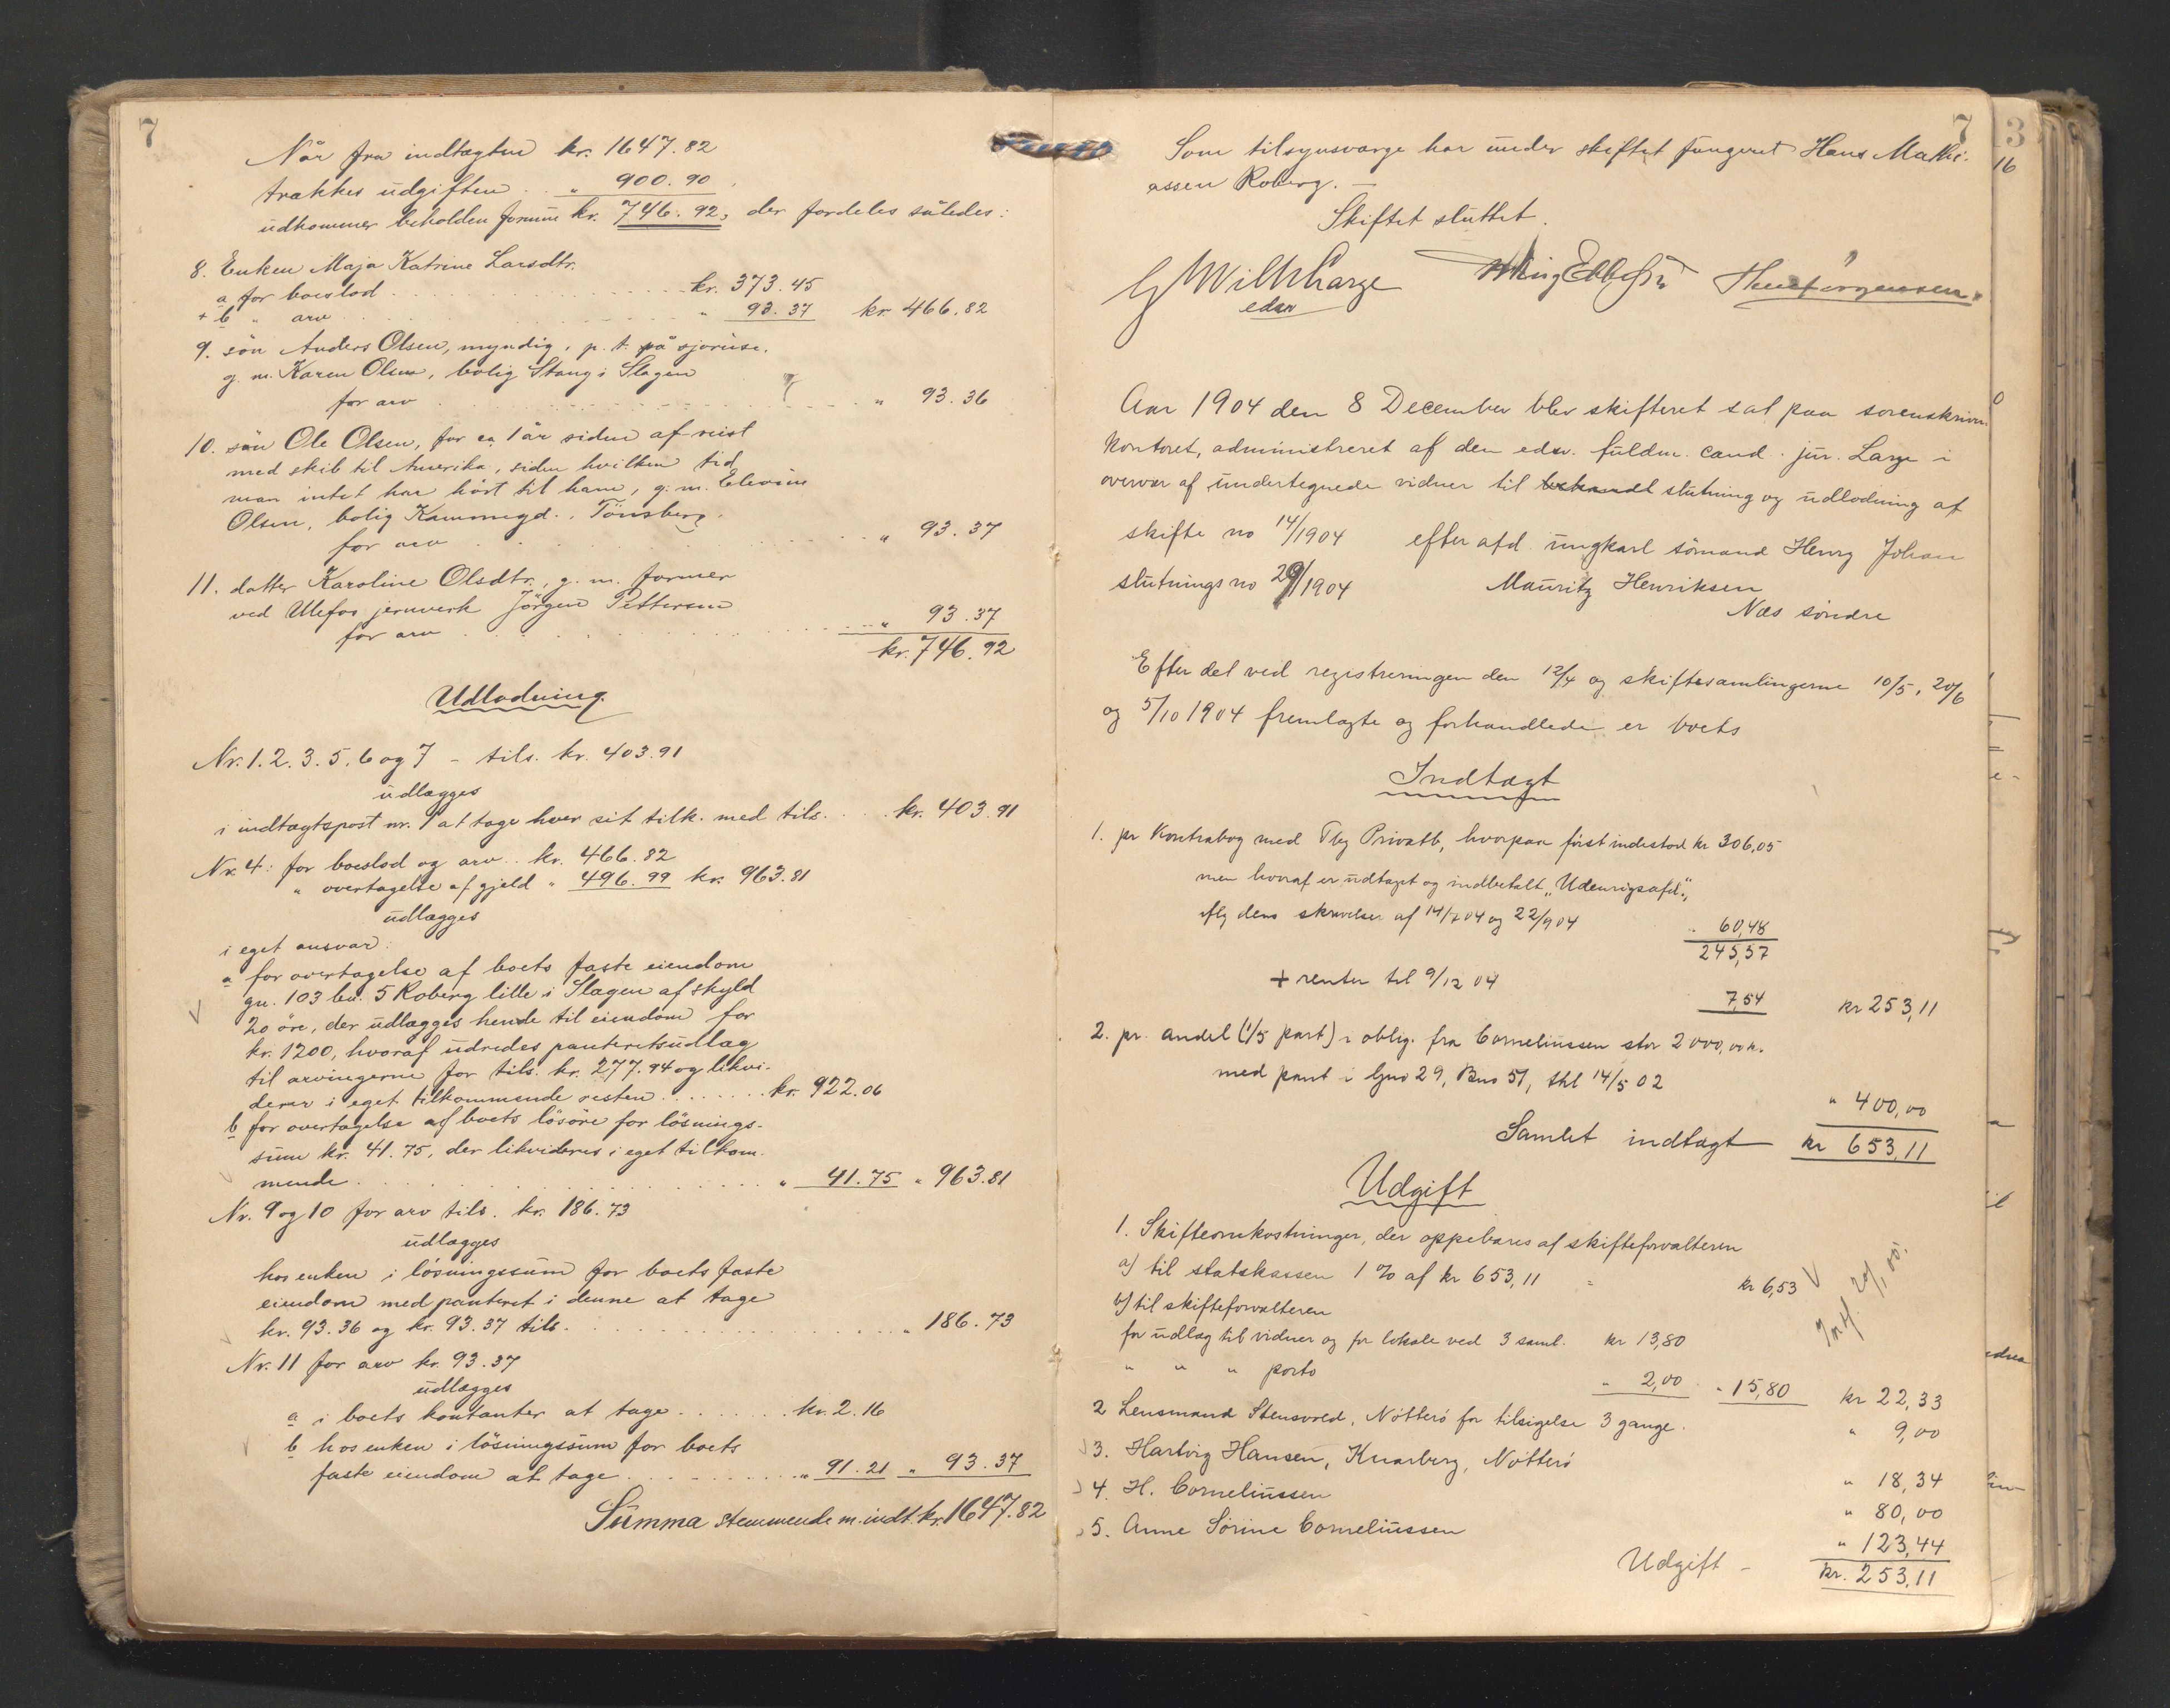 7
Når fra indtægten kr. 1647.82
trækkes udgiften . . " 900.90
udkommer beholden formue kr. 746.92, der fordeles således:
8. Enken Maja Katrine Larsdtr.
a for boeslod . . . kr. 373.45
+ b " arv . . . " 93.37 kr. 466.82
9. sön Anders Olsen, myndig, p. t. på sjöreise,
g. m. Karen Olsen, bolig Stang i Slagen
for arv . . . " 93.36
10. sön Ole Olsen, for ca 1 år siden afreist
med skib til Amerika, siden hvilken tid
man intet har hört til ham, g. m. Elevine
Olsen, bolig Kammegd., Tönsberg.
for arv . . . " 93.37
11. datter Karoline Olsdtr., g. m. former
ved Ulefos jernverk Jörgen Pettersen
for arv . . . " 93.37
kr. 746.92
Udlodning.
Nr. 1. 2. 3. 5. 6 og 7 - tils. kr. 403.91
udlægges
i indtægtspost nr. 1 at tage hver sit tilk. med tils. . . . kr. 403.91
Nr. 4: for boeslod og arv . . kr. 466.82
" overtagelse af gjeld " 496.99 kr. 963.81
udlægges
i eget ansvar:
a for overtagelse af boets faste eiendom
gn. 103 bn. 5 Roberg lille i Slagen af skyld
20 öre, der udlægges hende til eiendom for
kr. 1200, hvoraf udredes panteretsudlæg
til arvingerne for tils. kr. 277.94 og likvi-
derer i eget tilkommende resten . . . kr. 922.06
b for overtagelse af boets lösöre for lösnings-
sum kr. 41.75, der likvideres i eget tilkom-
mende . . . " 41.75 " 963.81
Nr. 9 og 10 for arv tils. kr. 186.73
udlægges
hos enken i lösningssum for boets faste
eiendom med panteret i denne at tage
kr. 93.36 og kr. 93.37 tils. . . . " 186.73
Nr. 11 for arv kr. 93.37
udlægges
a i boets kontanter at tage . . . kr. 2.16
b hos enken i lösningssum for boets
faste eiendom at tage . . . " 91.21 " 93.37
Summa stemmende m. indt. kr. 1647.82
7
Som tilsynsværge har under skiftet fungeret Hans Mathi-
assen Roberg. -
Skiftet sluttet.
edsv
Aar 1904 den 8 December blev skifteret sat paa sorenskriver
kontoret, administreret af den edsv. fuldm. cand. jur. Large i
overvær af undertegnede vidner til slutning og udlodning af
skifte no 14/1904 efter afd. ungkarl sömand Henry Johan
slutnings no 29/1904 Mauritz Henriksen
Næs söndre
Efter det ved registreringen den 12/4 og skiftesamlingerne 10/5, 20/6
og 5/10 1904 fremlagte og forhandlede er boets
Indtægt
1. pr Kontrabog med Tbg Privatb, hvorpaa först indestod kr 306,05
men hvoraf er udtaget og indbetalt "Udenrigsafd.",
iflg dens skrivelser af 14/7 04 og 22/9 04 " 60,48
245,57
+ renter til 9/12 04 7,54 kr 253,11
2. pr. andel (1/5 part) i oblig. fra Corneliussen stor 2000,00 kr.
med pant i Gno 29, Bno 51, thl 14/5 02 " 400,00
Samlet indtægt kr 653,11
Udgift
1. Skifteomkostninger, der oppebæres af skifteforvalteren
a) til statskassen 1 % af kr 653,11 = kr 6,53
b) til skifteforvalteren
for udlæg til vidner og for lokale ved 3 saml. kr 13,80
" " " porto " 2,00 " 15,80 kr 22,33
2 Lensmand Stensvold, Nötterö for tilsigelse 3 gange. " 9,00
3. Hartvig Hansen, Knarberg, Nötterö " 18,34
4. H. Corneliussen " 80,00
5. Anne Sörine Corneliussen " 123,44
Udgift - kr. 253,11
3
16